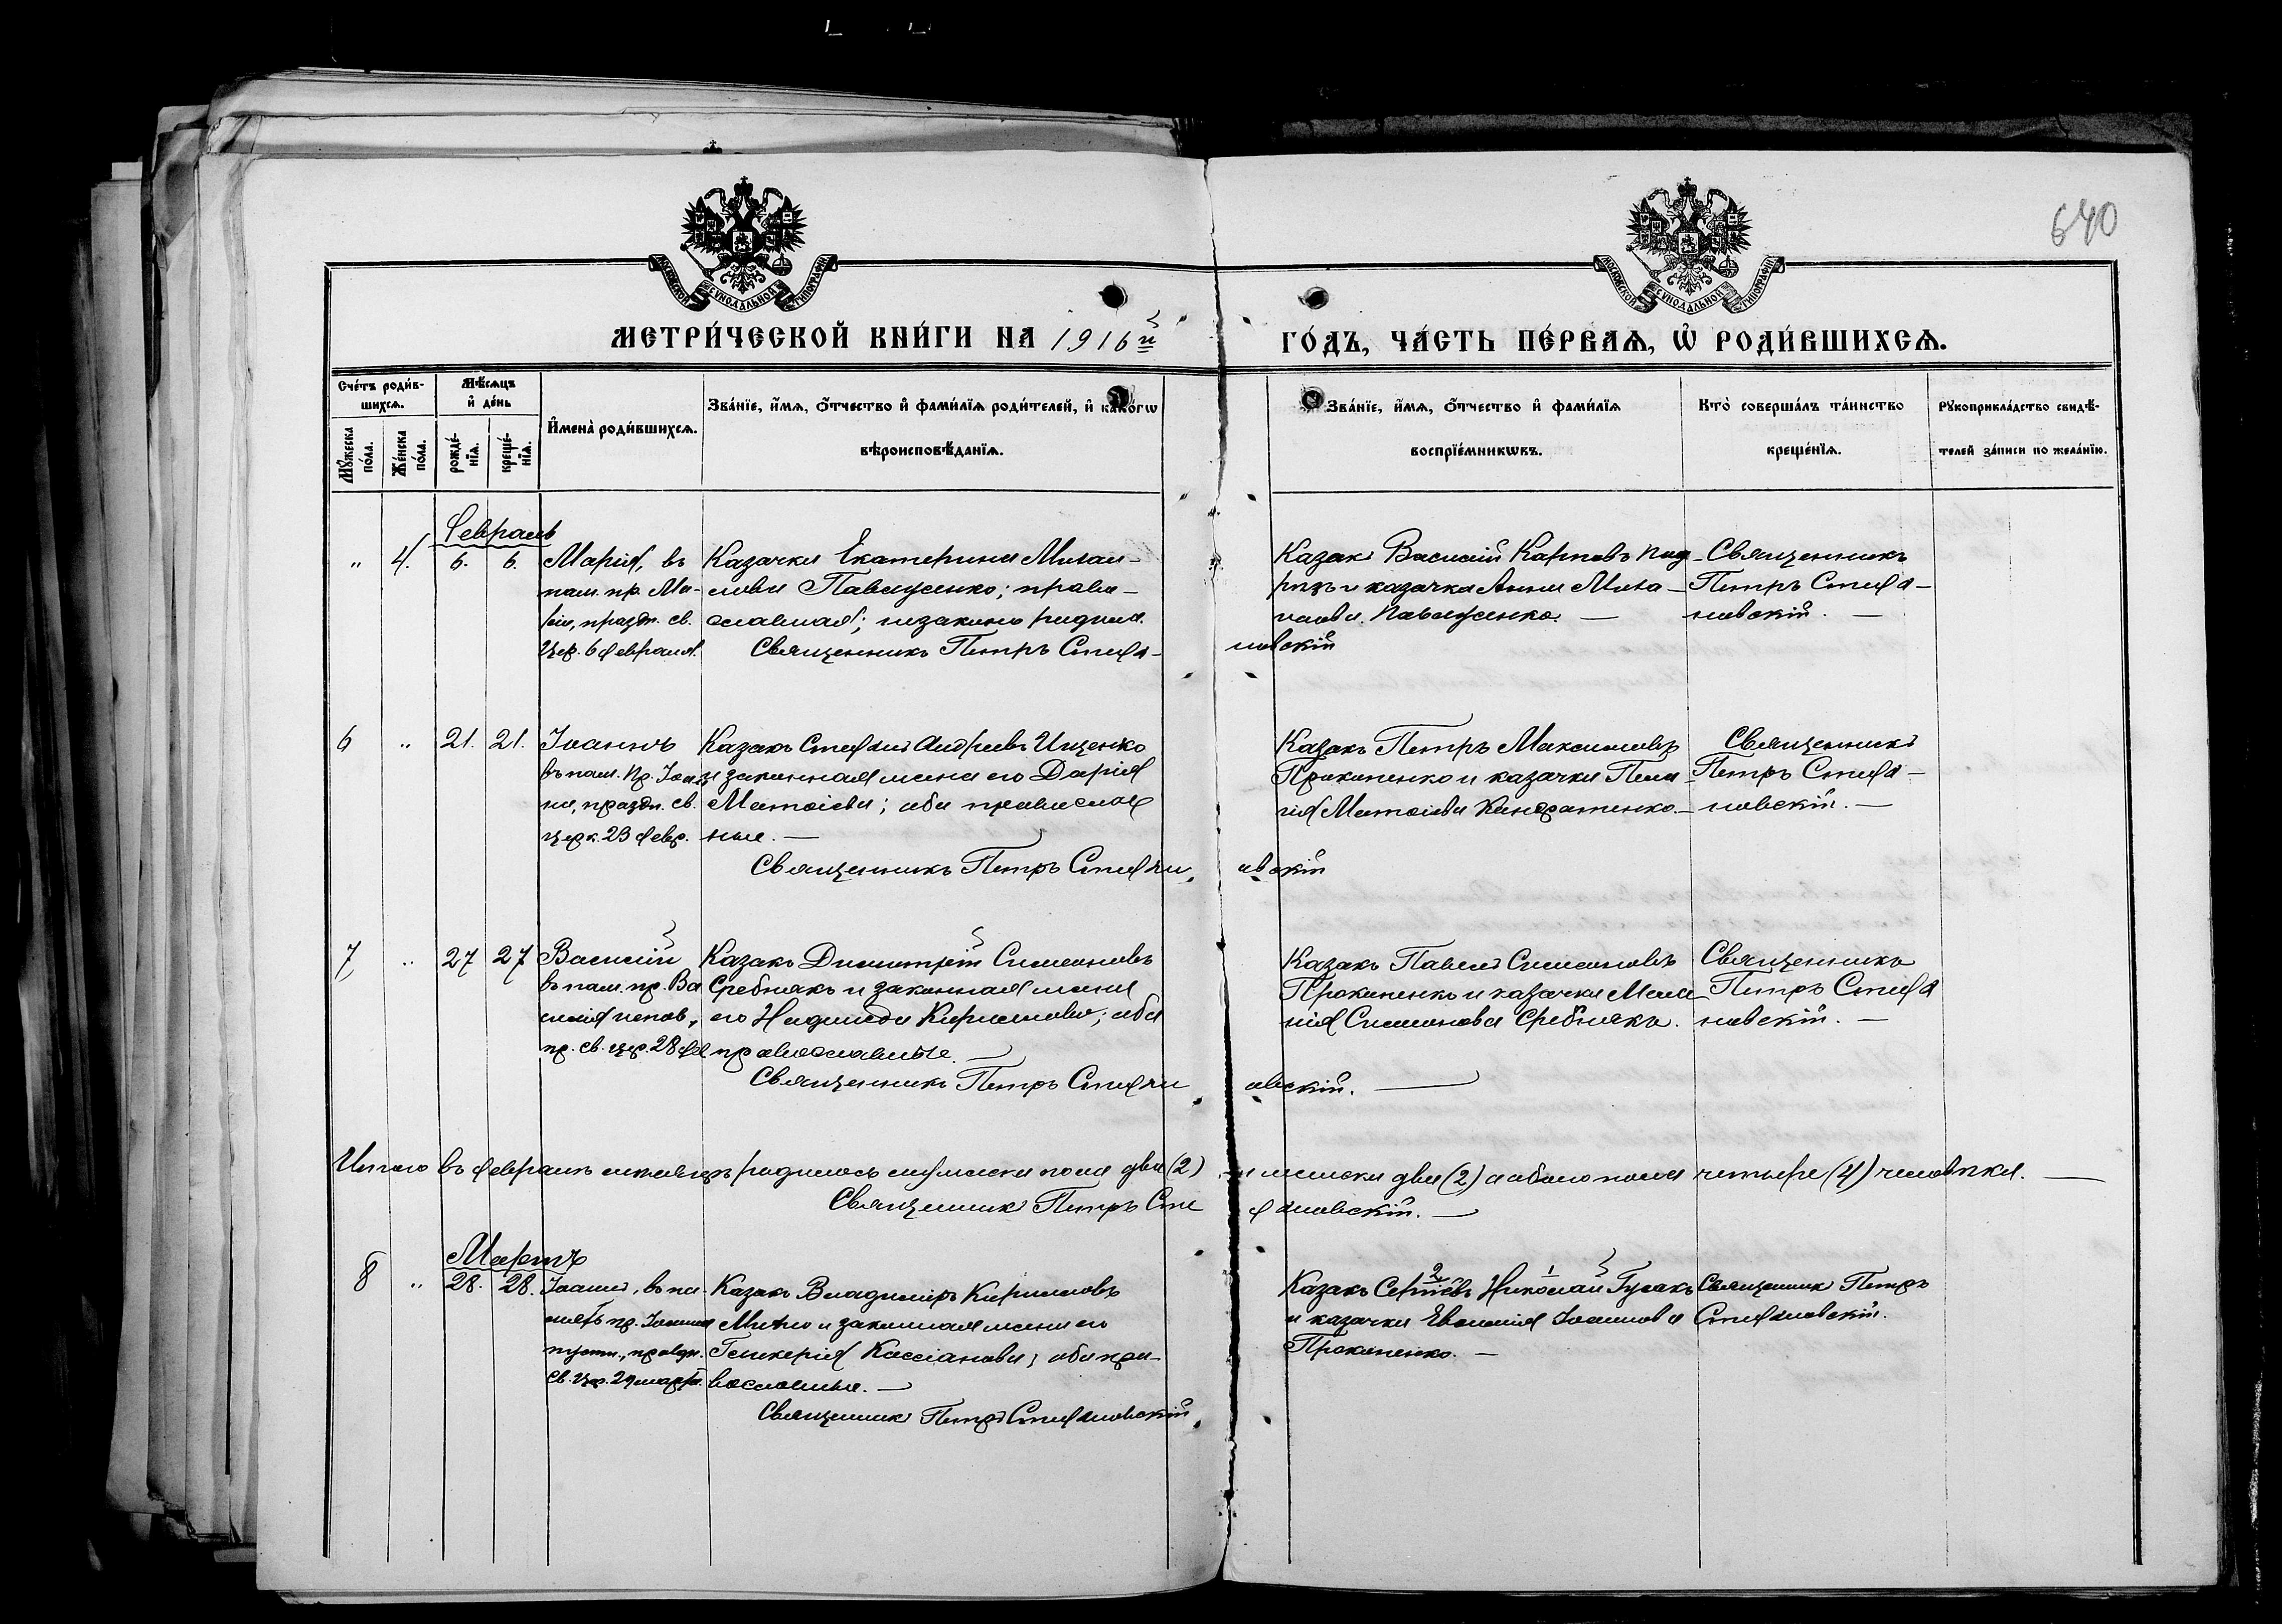 640
МОСКОВСКОЙ СУНОДАЛЬНОЙ ТИПОГРАФІИ
МОСКОВСКОЙ СУНОДАЛЬНОЙ ТИПОГРАФІИ
МЕТРИ́ЧЕСКОЙ КНИ́ГИ НА 1916й ГО́ДЪ, ЧА́СТЬ ПЕ́РВАѦ, Ѡ҆ РОДИ́ВШИХСѦ.
Сче́тъ роди́в-
шихсѧ.
Мꙋ́жеска по́ла.
Же́нска по́ла.
Мѣ́сѧцъ
и҆ де́нь
рожде́-нїѧ.
креще́-нїѧ.
И҆мена̀ роди́вшихсѧ.
Зва́нїе, и҆́мѧ, ѻ҆́тчество и҆ фами́лїѧ роди́телей, и҆ како́гѡ
вѣроисповѣ́данїѧ.
Зва́нїе, и҆́мѧ, ѻ҆́тчество и҆ фами́лїѧ
воспрїе́мникѡвъ.
Кто̀ соверша́лъ та́инство
креще́нїѧ.
Рꙋкоприкла́дство свидѣ́-
телей за́писи по жела́нїю.
Февраль
" 4. 6. 6.
Марія, въ
пам. пр. Ма-
ріи, праздн. св.
Цер. 6 февраля.
Казачка Екатерина Михаи-
лова Павлусенко; право-
славная; незаконо родила.
Священникъ Петръ Стефа-
новскій
Казакъ Василій Карповъ
и казачка Анна Миха-
илова Павлусенко. —
Священникъ
Петръ Стефа-
новскій. —
6 " 21. 21.
Іоаннъ
въ пам. пр. Іоан
на, праздн. св.
церк. 23 февр.
Казакъ Стефанъ Андреевъ Ищенко
и законная жена его Дарія
Матѳіева; оба православ
ные. —
Священникъ Петръ Стефан
овскій
Казакъ Петръ Максимовъ
Прокопенко и казачка Пела
гія Матѳіева Кондратенко. —
Священникъ
Петръ Стефа-
новскій. —
7 " 27 27
Василій
въ пам. пр. Ва
силія испов.,
пр. св. цер. 28 фев
Казакъ Димитрій Симеоновъ
Сребнякъ и законная жена
его Надежда Кириллова; оба
православные. —
Священникъ Петръ Стефан
овскій. —
Казакъ Павелъ Симеоновъ
Прокопенко и казачка Мела
нія Симеонова Сребнякъ.
Священникъ
Петръ Стефа
новскій. —
Итого въ февралѣ мѣсяцѣ родилось мужеска пола два (2) и женска два (2) а обоего пола четыре (4) человѣка. —
Священникъ Петръ Сте фановскій. —
Мартъ
8 " 28. 28.
Іоаннъ, въ па-
мять пр. Іоанна
пустн., праздн.
св. цер. 29 марта.
Казакъ Владиміръ Кирилловъ
и законная жена его
Гликерія Кассіанова; оба пра-
вославные. —
Священникъ Петръ Стефановскій.
Казакъ Сергіевъ 2 Николай 1 Гусакъ
и казачка Евѳимія Іоаннова
Прокопенко. —
Священникъ Петръ
Стефановскій.